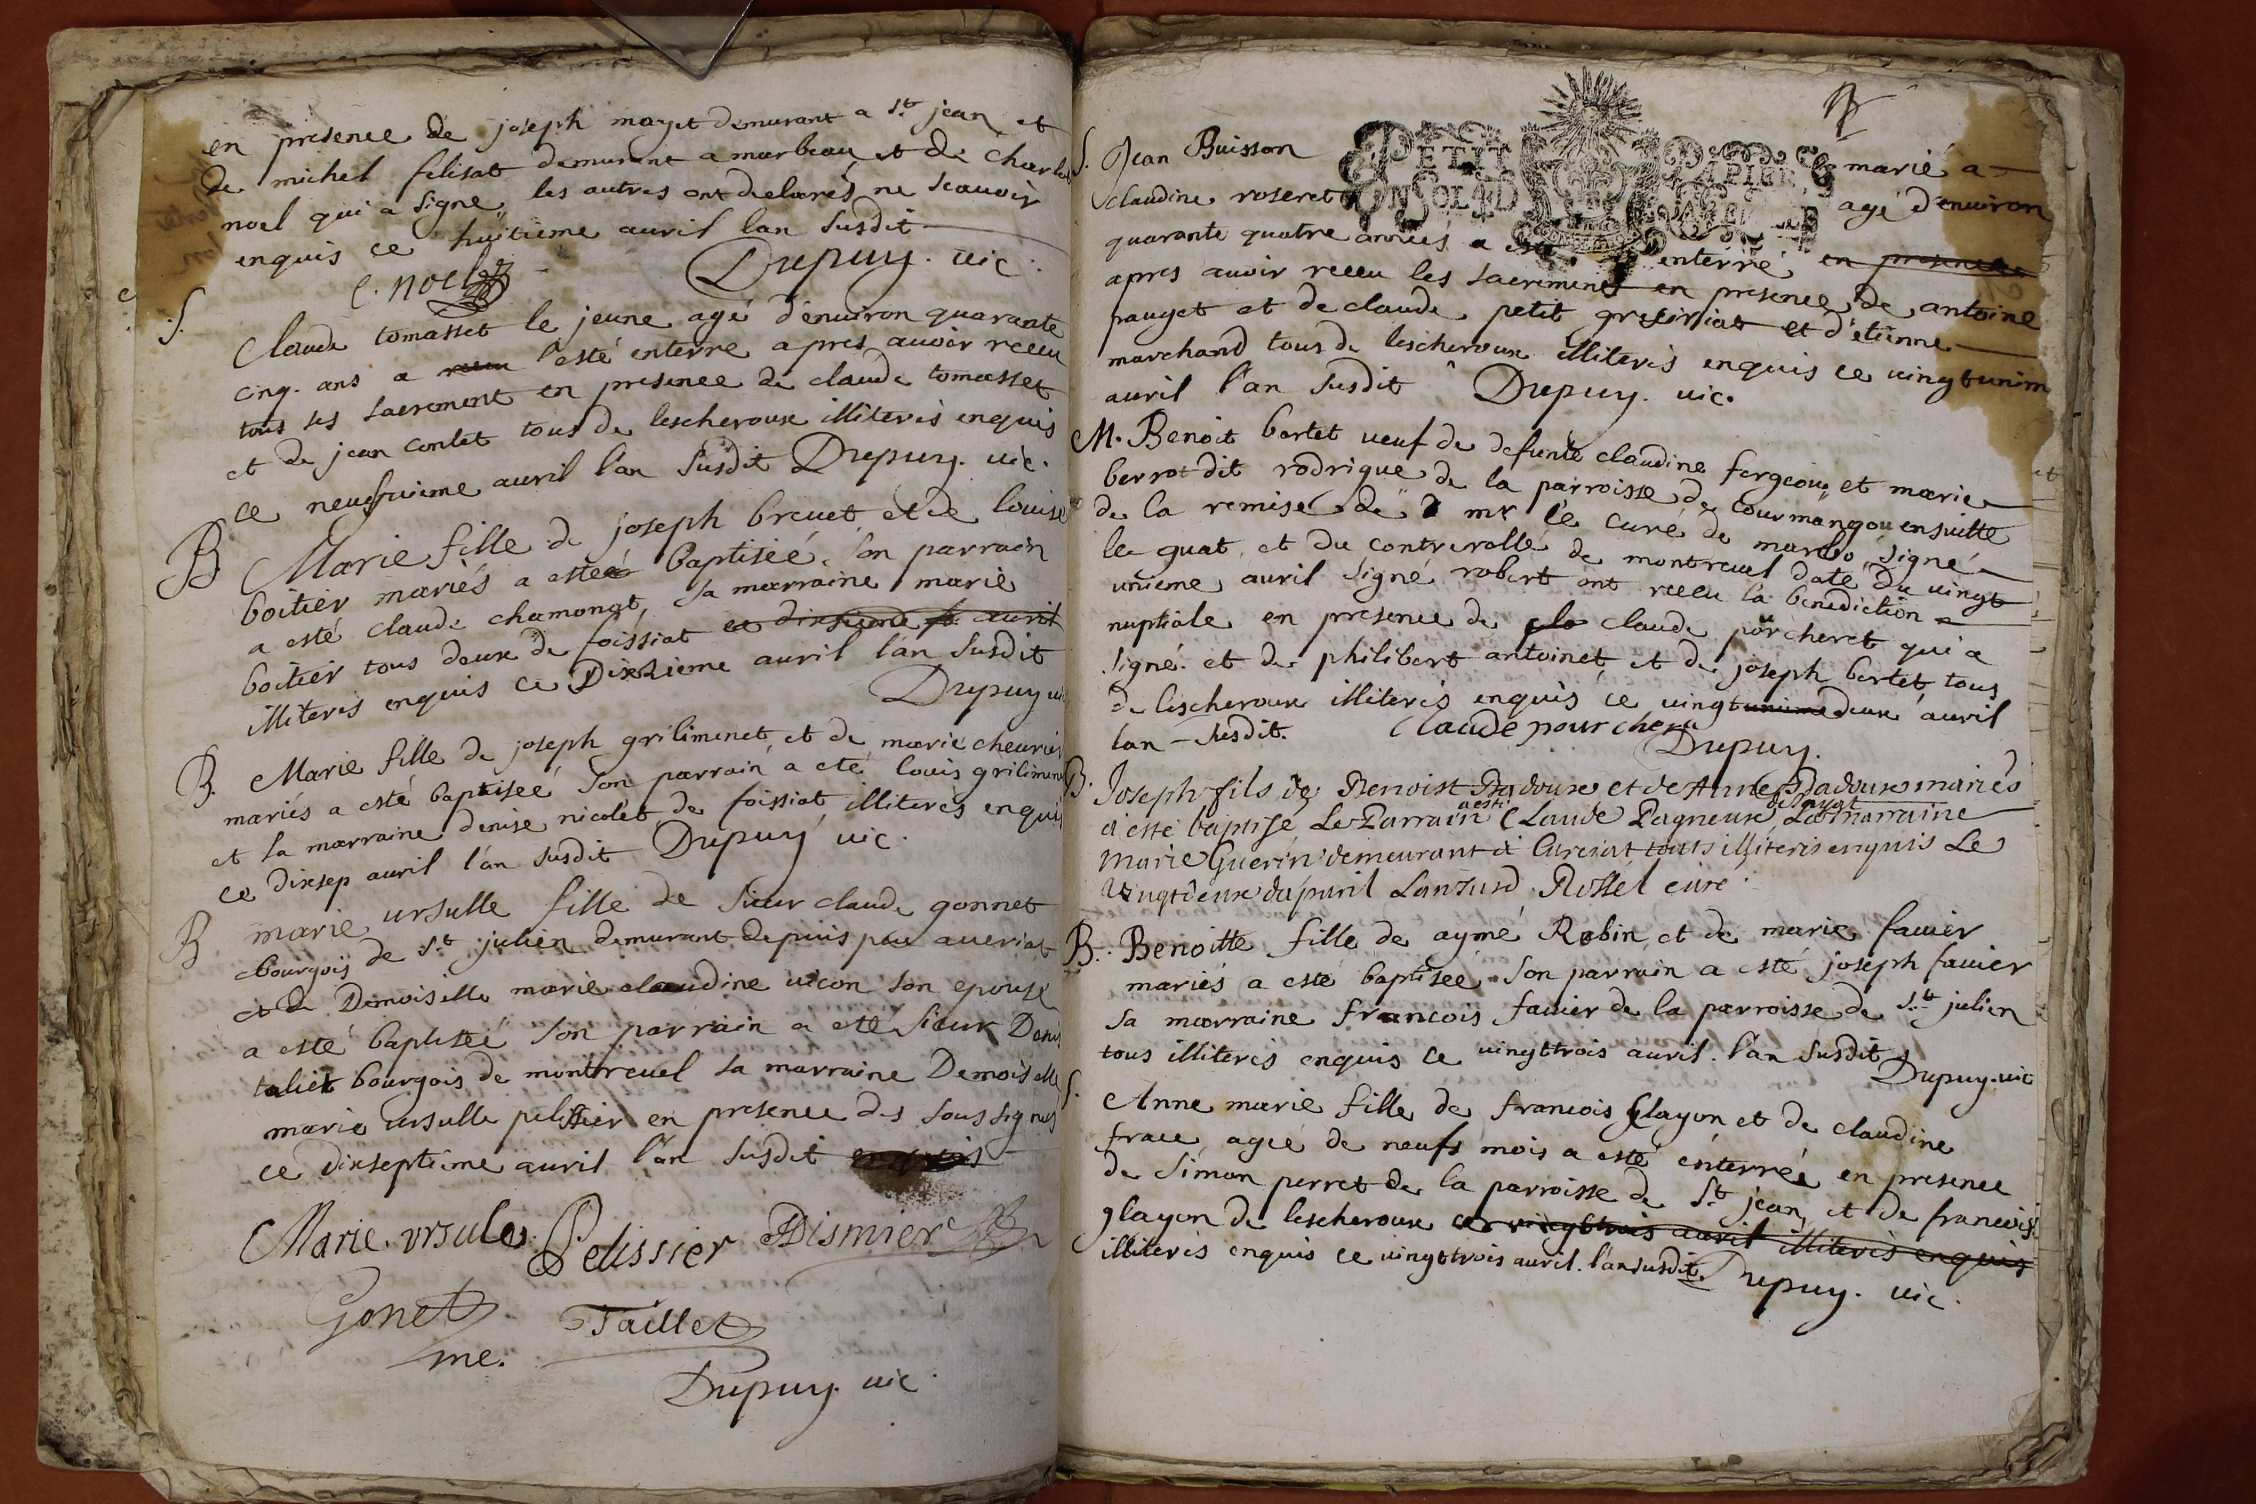 en presence de joseph mayet demurant a St jean et
de michel felisat demurant a marbeau et de charle
noel qui a signe les autres ont declarés ne scauoir
enquis ce huitieme auril lan susdit
C. noel Dupuy. uic.
S.
Claude tomasset le jeune agé d'enuiron quarante
cinq. ans a esté enterre apres auoir receu
tous ses sacrement en presence de claude tomasset
et de jean contet tous de lescheroux illiterés enquis
ce neufuieme auril l'an susdit Dupuy. uic.
B Marie fille de joseph breuet et de louise
boitier mariés a estee baptisée. son parrain
a esté claude chamonat, sa marraine marie
boitier tous deux de foissiat ce dixsieme auril
illiterés enquis ce Dixsieme auril l'an susdit
Dupuy ui
B. Marie fille de joseph griliminet et de marie cheurier
mariés a esté baptisée son parrain a eté louis grilimine
et sa marraine denise nicolet de foissiat illiterés enquis
ce dixsep auril l'an susdit Dupuy uic.
B marie ursulle fille de sieur claude gonnet
bourgois de St julien demurant depuis peu a ueriat
et de Demoiselle marie claudine uicon son epouse
a esté baptiseé son parrain a eté sieur Denis
taliet bourgois de montreuel sa marraine Demoiselle
marie ursulle pelissier en presence des soussignés
ce dixseptieme auril l'an susdit
Marie. ursule Pelissier Dismier
Gonet Taillet
me.
Dupuy. uic.
PETIT PAPIER
S. Jean Buisson marié a
claudine roseret agé d'enuiron
quarante quatre années a esté enterré en presence
apres auoir receu les sacrements en presence de antoine
pauget et de claude petit et d'etienne
marchand tous de lescheroux illiterés enquis ce uingtunim
auril l'an susdit Dupuy. uic.
M. Benoit bertet ueuf de defunte claudine fergeou et marie
berrot dit rodrigue de la parroisse de courmangou ensuitte
de la remise de mr le curé de marbo signé
le guat, et du controrolle de montreuel date du uingt
unieme auril signé robert ont receu la benediction
nuptiale en presence de claude pourcheret qui a
signé. et de philibert antoinet et de joseph bertet tous
de lescheroux illiterés enquis ce uingtunimedeux auril
lan susdit. Claude pourcheru
Dupuy.
B. Joseph fils de Benoist Badoux et de Anne Badoux mariés
a esté
a esté baptisé Le Parrain Claude Pagneux La marraine
Marie Guerin demeurant a Curciat touts illiterés enquis Le
Vingtdeux dapuril Lan susd. Rossel curé
B. Benoitte fille de aymé Robin et de marie fauier
mariés a esté baptisée son parrain a esté joseph fauier
sa marraine francois fauier de la parroisse de St julien
tous illiterés enquis ce uingttrois auril. l'an susdit
Dupuy. uic
S. Anne marie fille de francois glayon et de claudine
frace, agée de neufs mois a esté enterrée en presence
de simon perret de la parroisse de St jean, et de francois
glayon de lescheroux ce uingttrois auril illiterés enquis
illiterés enquis ce uingttrois auril. l'an susdit.
Dupuy. uic.